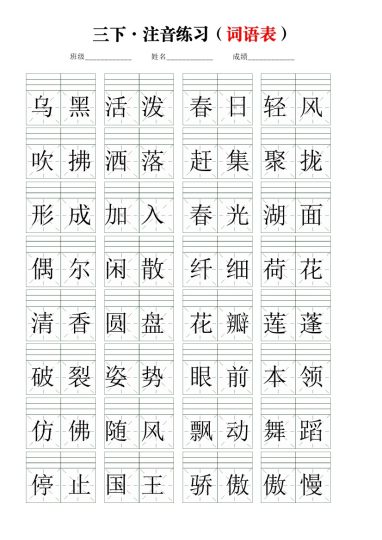 三下·注音练习（词语表）
班级____________ 姓名____________ 成绩____________
乌黑 活泼 春日 轻风
吹拂 洒落 赶集 聚拢
形成 加入 春光 湖面
偶尔 闲散 纤细 荷花
清香 圆盘 花瓣 莲蓬
破裂 姿势 眼前 本领
仿佛 随风 飘动 舞蹈
停止 国王 骄傲 傲慢